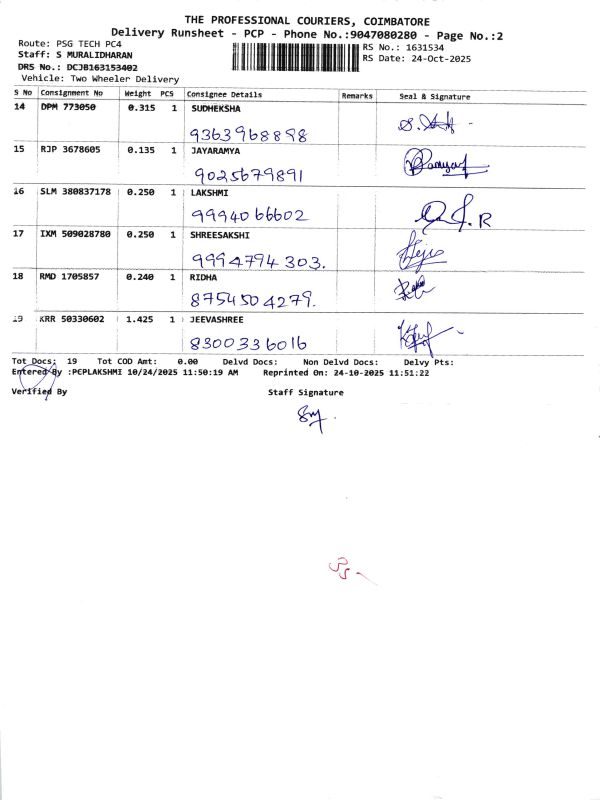 THE PROFESSIONAL COURIERS, COIMBATORE
Delivery Runsheet - PCP - Phone No.:9047080280 - Page No.:2
Route: PSG TECH PC4
RS No.: 1631534
Staff: S MURALIDHARAN
RS Date: 24-Oct-2025
DRS No.: DCJB163153402
Vehicle: Two Wheeler Delivery
S No Consignment No Weight PCS Consignee Details Remarks Seal & Signature
14 DPM 773050 0.315 1 SUDHEKSHA
9363968898
15 RJP 3678605 0.135 1 JAYARAMYA
9025679891
16 SLM 380837178 0.250 1 LAKSHMI
9994066602
17 IXM 509028780 0.250 1 SHREESAKSHI
9994794303.
18 RMD 1705857 0.240 1 RIDHA
8754504279.
19 KRR 50330602 1.425 1 JEEVASHREE
8300336016
Tot Docs: 19 Tot COD Amt: 0.00 Delvd Docs: Non Delvd Docs: Delvy Pts:
Entered By :PCPLAKSHMI 10/24/2025 11:50:19 AM Reprinted On: 24-10-2025 11:51:22
Verified By Staff Signature